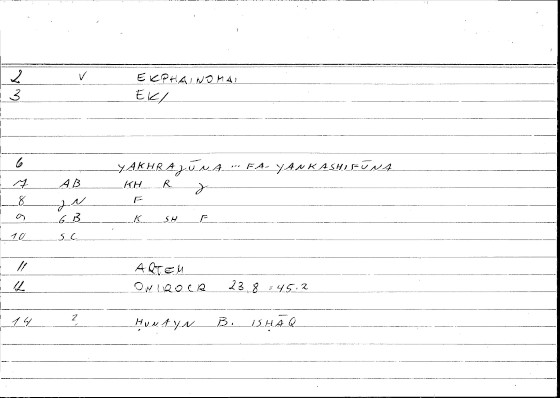 2 V EKPHAINOMAI
3 EK/
6 YAKHRAJŪNA ... FA-YANKASHIFŪNA
7 AB KH R J
8 JN F
9 GB K SH F
10 SC
11 ARTEM
12 ONIROCR 23.8 = 45.2
14 ? ḤUNAYN B. ISḤĀQ